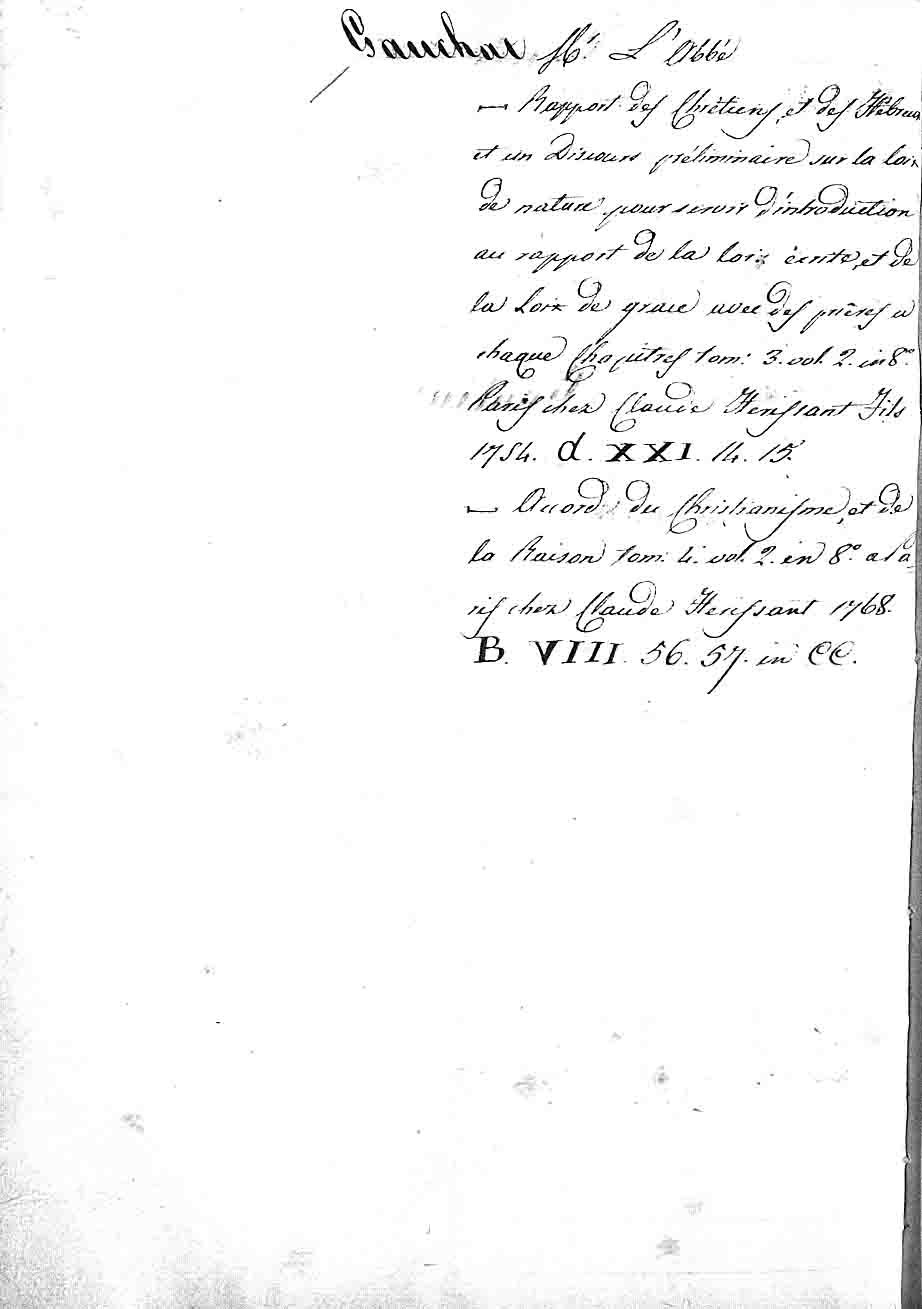 Gauchat Mr. L'Abbé
— Rapport des Chrétiens, et des Hébreux
et un Discours préliminaire sur la loix
de nature pour servir d'introduction
au rapport de la loix écrite, et de
la Loix de grace avec des prières a
chaque Chapitres tom: 3. vol. 2. in 8°.
Paris chez Claude Herissant Fils
1754. d. XXI. 14. 15.
— Accord du Christianisme, et de
la Raison tom. 4. vol. 2. in 8°. a Pa-
ris chez Claude Herissant 1768.
B. VIII. 56. 57. in CC.